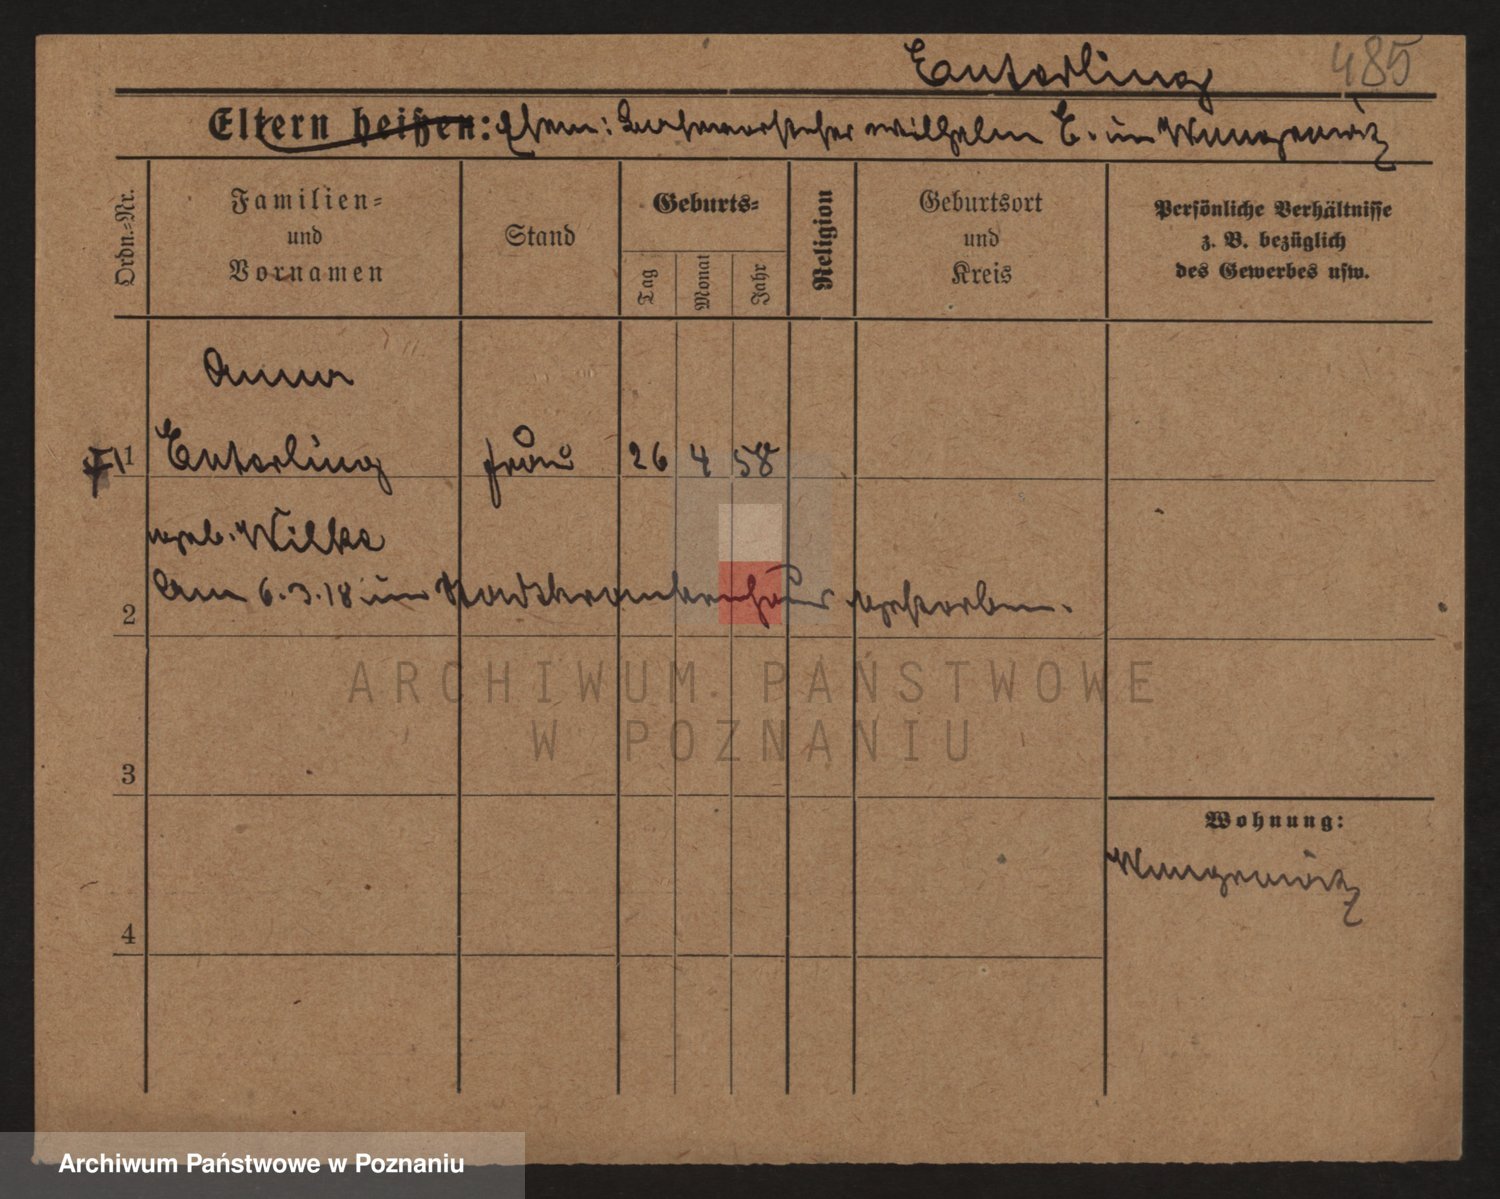 Enterling 485
Eltern heißen: Ehem: Bahnvorsteher Wilhelm E. in
Ordn.-Nr.
Familien-
und
Vornamen
Stand
Geburts-
Tag
Monat
Jahr
Religion
Geburtsort
und
Kreis
Persönliche Verhältnisse
z. B. bezüglich
des Gewerbes usw.
Anna
1 Enterling Frau 26 4 58
geb. Wilke
Am 6.3.18 im Stadtkrankenhaus gestorben.
2
ARCHIWUM PAŃSTWOWE
W POZNANIU
3
Wohnung:
4
Archiwum Państwowe w Poznaniu